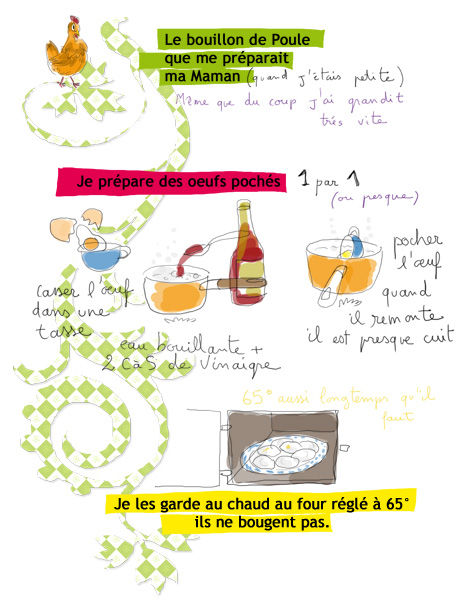 Le bouillon de Poule
que me préparait
ma Maman (quand j'étais petite)
Même que du coup j'ai grandit
très vite
Je prépare des oeufs pochés 1 par 1
(ou presque)
casser l'œuf
dans une
tasse
eau bouillante +
2 CàS de Vinaigre
pocher
l'œuf
quand
il remonte
il est presque cuit
65° aussi longtemps qu'il
faut
Je les garde au chaud au four réglé à 65°
ils ne bougent pas.